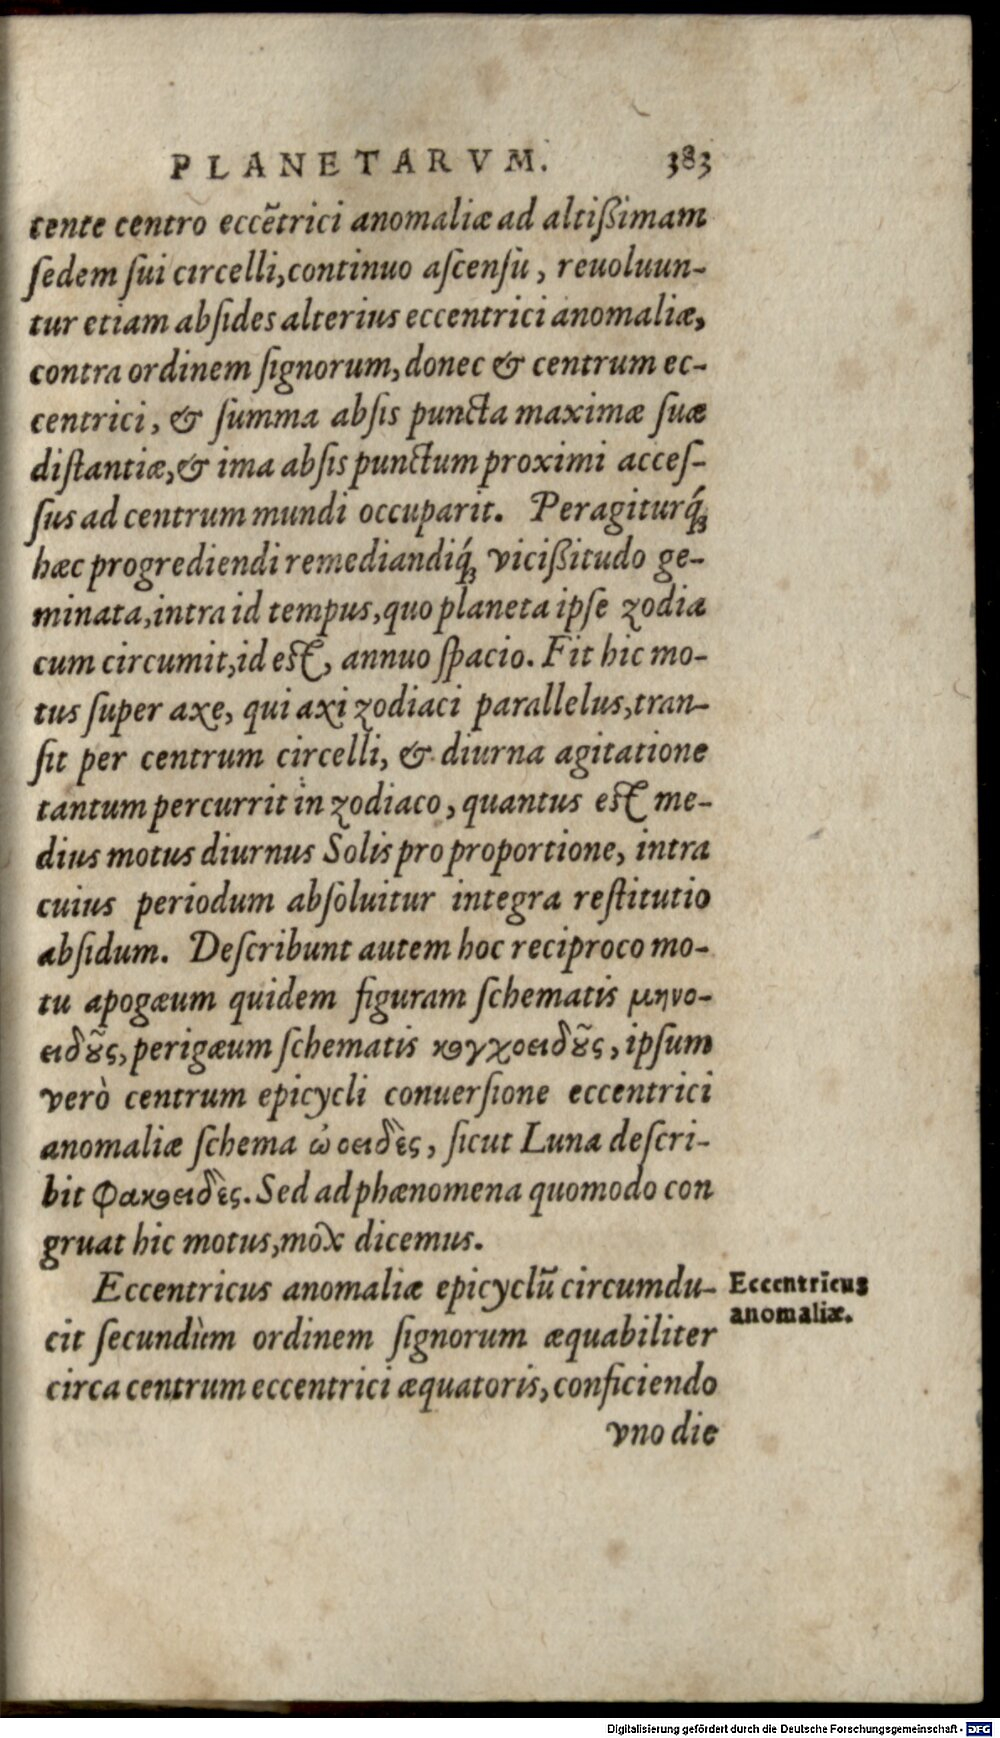 PLANETARVM. 383
tente centro eccẽtrici anomaliæ ad altißimam
ſedem ſui circelli, continuo aſcenſu, reuoluun-
tur etiam abſides alterius eccentrici anomaliæ,
contra ordinem ſignorum, donec & centrum ec-
centrici, & ſumma abſis puncta maximæ ſuæ
diſtantiæ, & ima abſis punctum proximi acceſ-
ſus ad centrum mundi occuparit. Peragiturq́;
hæc progrediendi remediandiq́; viciβitudo ge-
minata, intra id tempus, quo planeta ipſe zodia
cum circumit, id eſt, annuo ſpacio. Fit hic mo-
tus ſuper axe, qui axi zodiaci parallelus, tran-
ſit per centrum circelli, & diurna agitatione
tantum percurrit in zodiaco, quantus eſt me-
dius motus diurnus Solis pro proportione, intra
cuius periodum abſoluitur integra reſtitutio
abſidum. Deſcribunt autem hoc reciproco mo-
tu apogæum quidem figuram ſchematis μηνο-
ειδοῦς, perigæum ſchematis κογχοειδοῦς, ipſum
verò centrum epicycli conuerſione eccentrici
anomaliæ ſchema ὠοειδὲς, ſicut Luna deſcri-
bit φακοειδὲς. Sed ad phænomena quomodo con
gruat hic motus, mox dicemus.
Eccentricus anomaliæ epicyclũ circumdu-
cit ſecundùm ordinem ſignorum æquabiliter
circa centrum eccentrici æquatoris, conficiendo
vno die
Eccentricus
anomaliæ.
Digitalisierung gefördert durch die Deutsche Forschungsgemeinschaft - DFG